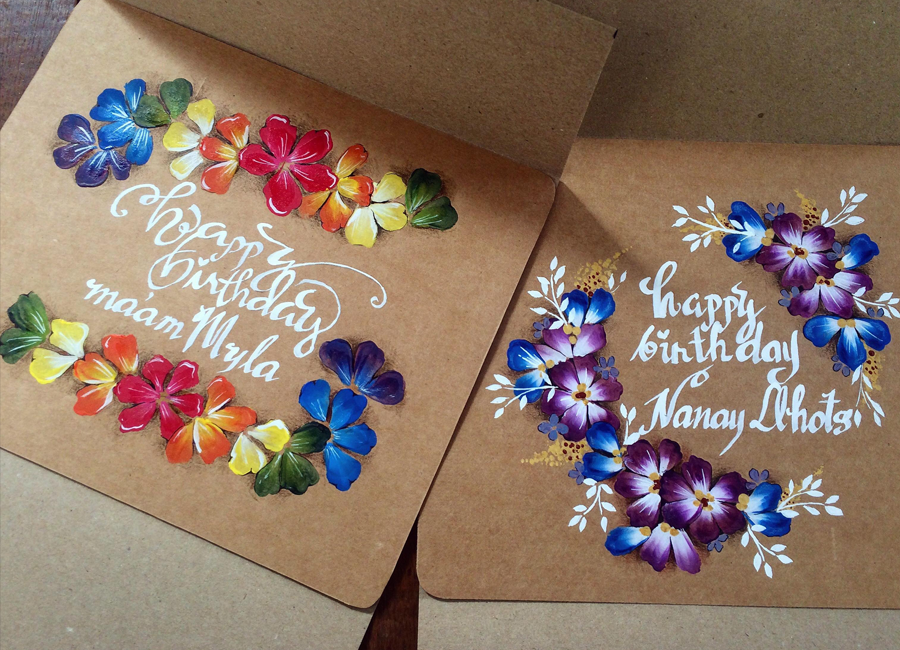 happy
birthday
ma'am Myla
happy
birthday
Nanay Whots